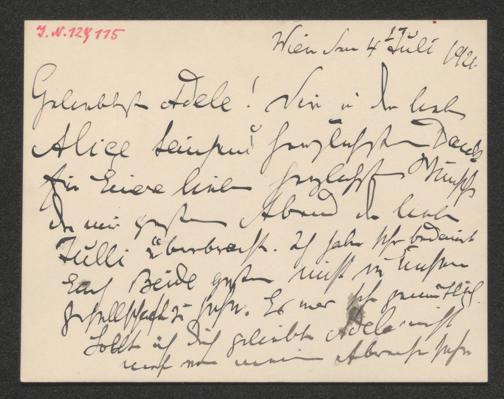 I.N. 124115
Wien den 4 Juli 192
Geliebteste Adele! Dir u der lieben
Alice tausend herzlichsten Dank
für Euere lieben herzlichsten Wünsche
die mir gestern Abend der liebe
Julli überbracht. Ich habe sehr bedauert
Euch Beide gestern nicht in
Gesellschaft zu sehn. Es war sehr gemütlich.
Sollt ich Dich geliebte Adele nicht
mehr vor meiner Abreise sehn